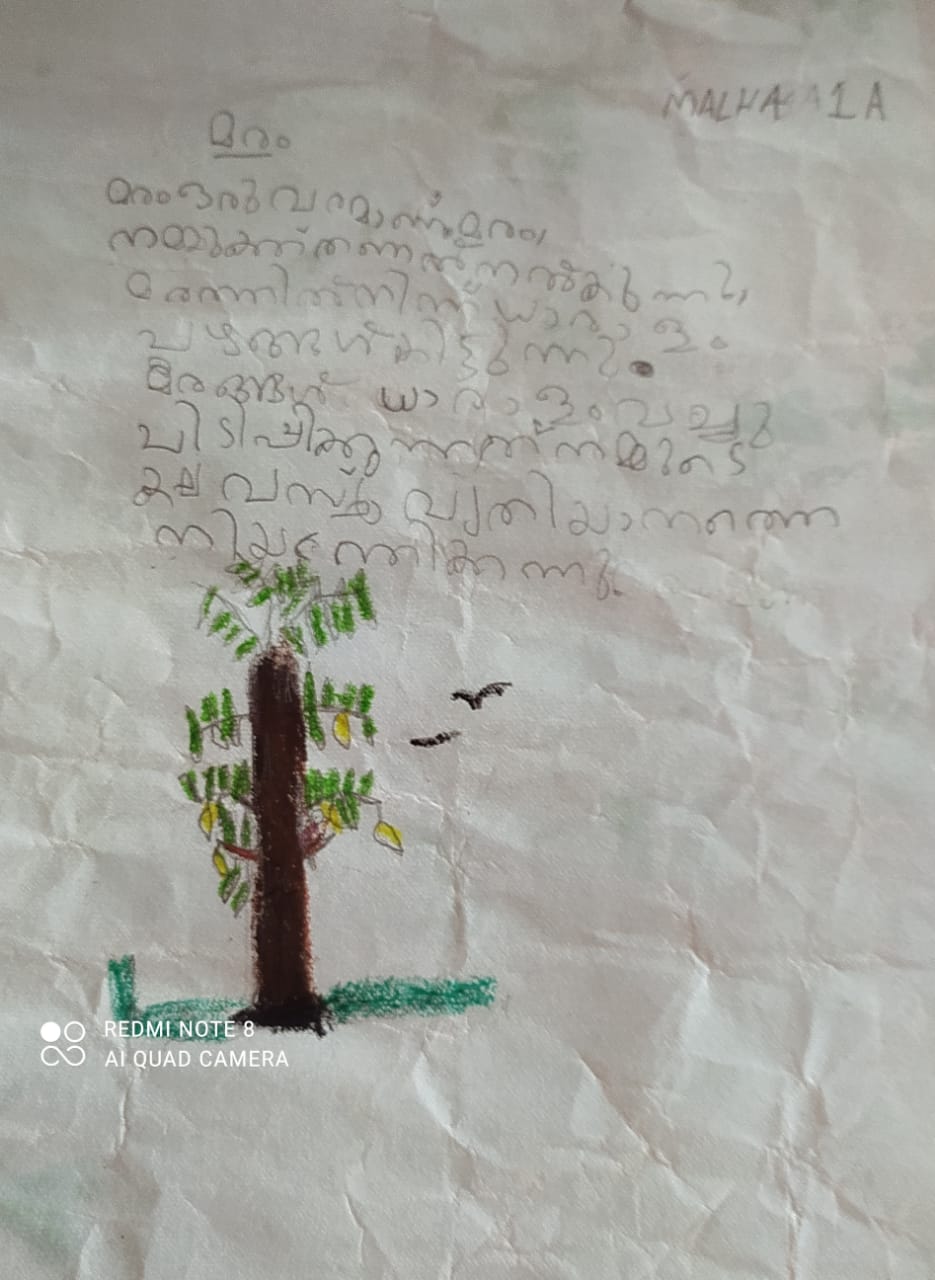 MALHA 1 A
മരം
മരം ഒരു വരമാണ് മരം,
നമ്മുക്ക് തണൽ നൽകുന്നു,
മരത്തിൽ നിന്ന് ധാരാളം
പഴങ്ങൾ കിട്ടുന്നു.
മരങ്ങൾ ധാരാളം വച്ചു
പിടിപ്പിക്കുന്നത് നമ്മുടെ
വ്യതിയാനത്തെ
നിയന്ത്രിക്കുന്നു.
REDMI NOTE 8
AI QUAD CAMERA